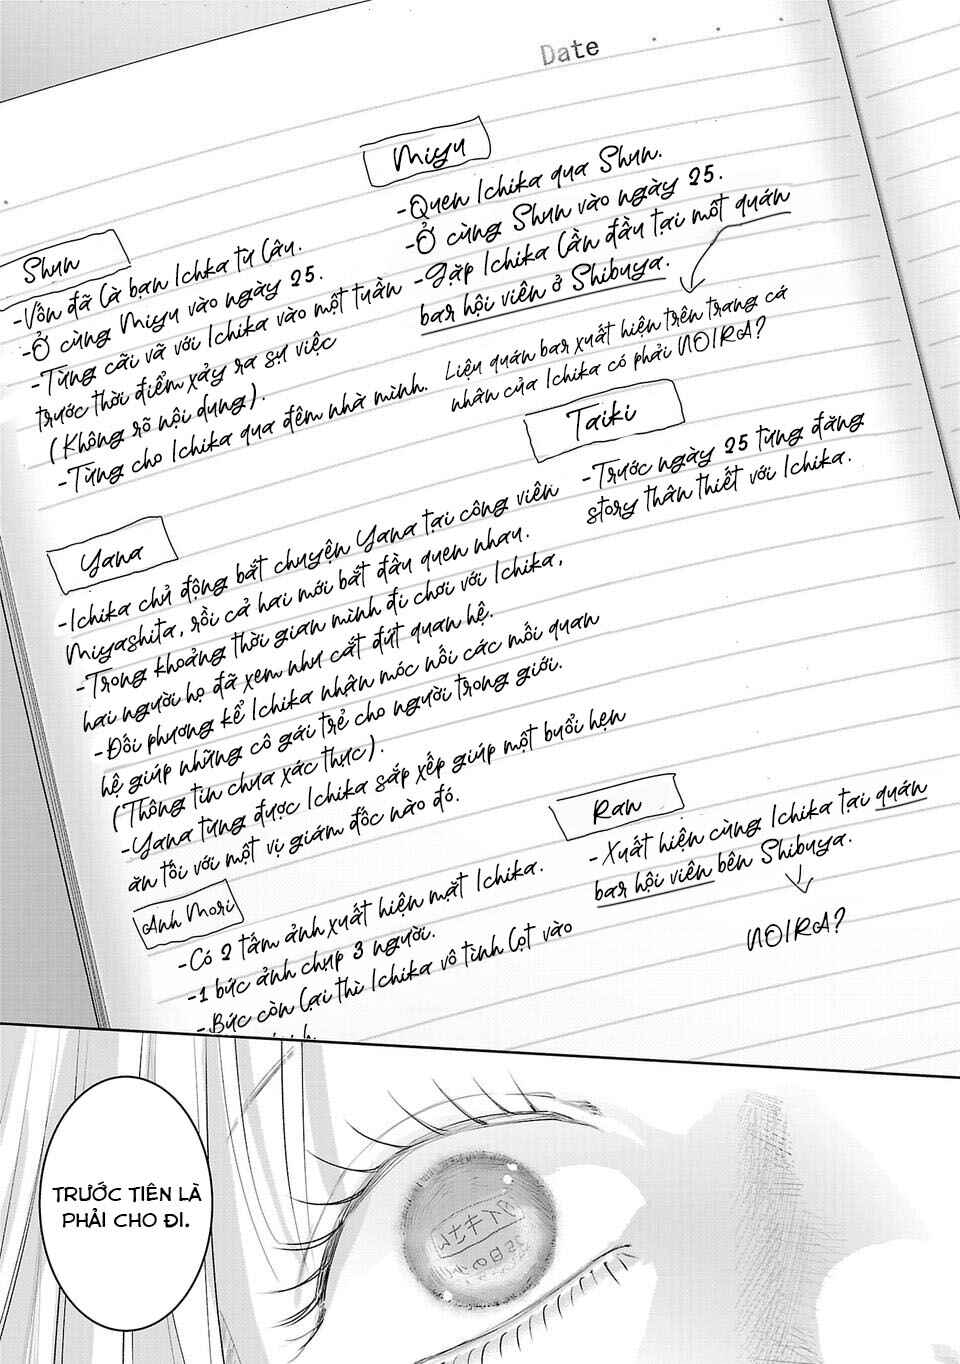 Date
Miyu
-Quen Ichika qua Shun.
-Ở cùng Shun vào ngày 25.
-Gặp Ichika lần đầu tại một quán
bar hội viên ở Shibuya.
Liệu quán bar xuất hiện trên trang cá
nhân của Ichika có phải NOIRA?
Shun
-Vốn đã là bạn Ichka từ lâu.
-Ở cùng Miyu vào ngày 25.
-Từng cãi vã với Ichika vào một tuần
trước thời điểm xảy ra sự việc
(Không rõ nội dung).
-Từng cho Ichika qua đêm nhà mình.
Taiki
-Trước ngày 25 từng đăng
story thân thiết với Ichika.
Yana
-Ichika chủ động bắt chuyện Yana tại công viên
Miyashita, rồi cả hai mới bắt đầu quen nhau.
-Trong khoảng thời gian mình đi chơi với Ichika,
hai người họ đã xem như cắt đứt quan hệ.
-Đối phương kể Ichika nhận móc nối các mối quan
hệ giúp những cô gái trẻ cho người trong giới.
(Thông tin chưa xác thực).
-Yana từng được Ichika sắp xếp giúp một buổi hẹn
ăn tối với một vị giám đốc nào đó.
Ran
-Xuất hiện cùng Ichika tại quán
bar hội viên bên Shibuya.
NOIRA?
Anh Mori
-Có 2 tấm ảnh xuất hiện mặt Ichika.
-1 bức ảnh chụp 3 người.
-Bức còn lại thì Ichika vô tình lọt vào
TRƯỚC TIÊN LÀ
PHẢI CHO ĐI.